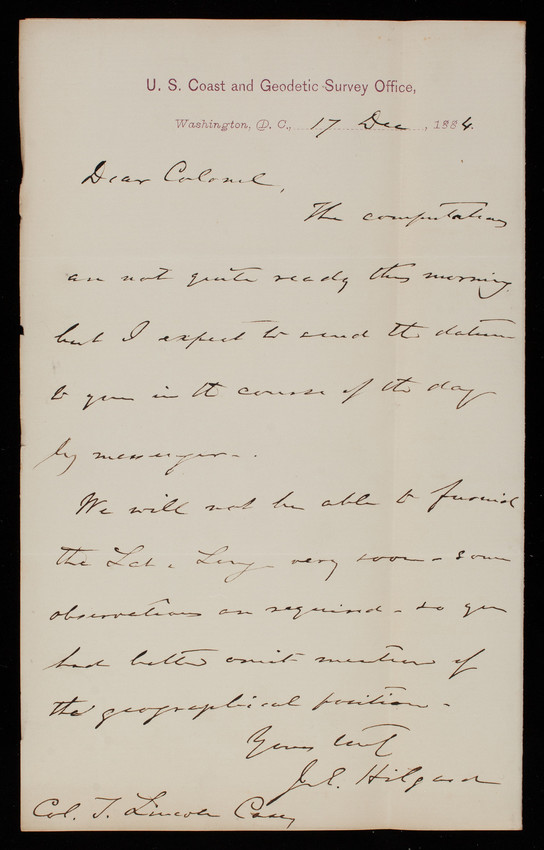 U. S. Coast and Geodetic Survey Office,
Washington, D. C., 17 Dec, 1884.
Dear Colonel,
The computations
are not quite ready this morning
but I expect to send the datum
to you in the course of the day
by messenger.
We will not be able to furnish
the Lat & Long very soon - some
observations are required - so you
had better omit mention of
the geographical position -
Yours
J. E. Hilgard
Col. T. Lincoln Casey